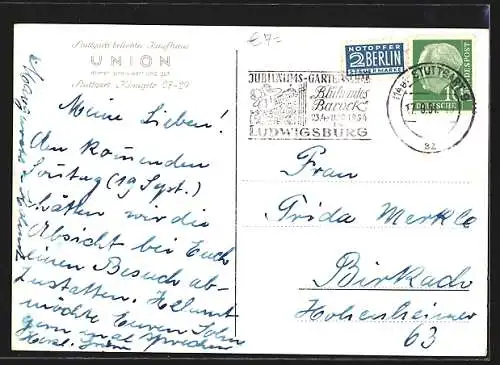 Stuttgarts beliebtes Kaufhaus
UNION
immer preiswert und gut
Stuttgart Königstr. 27-29
€ 7=
NOTOPFER
2 BERLIN
STEUERMARKE
DEUTSCHE BUNDESPOST
JUBILÄUMS-GARTENSCHAU
Blühendes
Barock
1954
in
LUDWIGSBURG
STUTTGART 9
az
Meine Lieben!
Am kommenden
Sonntag (19 Sept.)
hätten wir die
Absicht bei Euch
einen Besuch ab-
zustatten. Helmut
möchte Euren Sohn
gern mal sprechen
Herzl.
Frau
Frida Merkle
Birkach
Hohenheimer
63